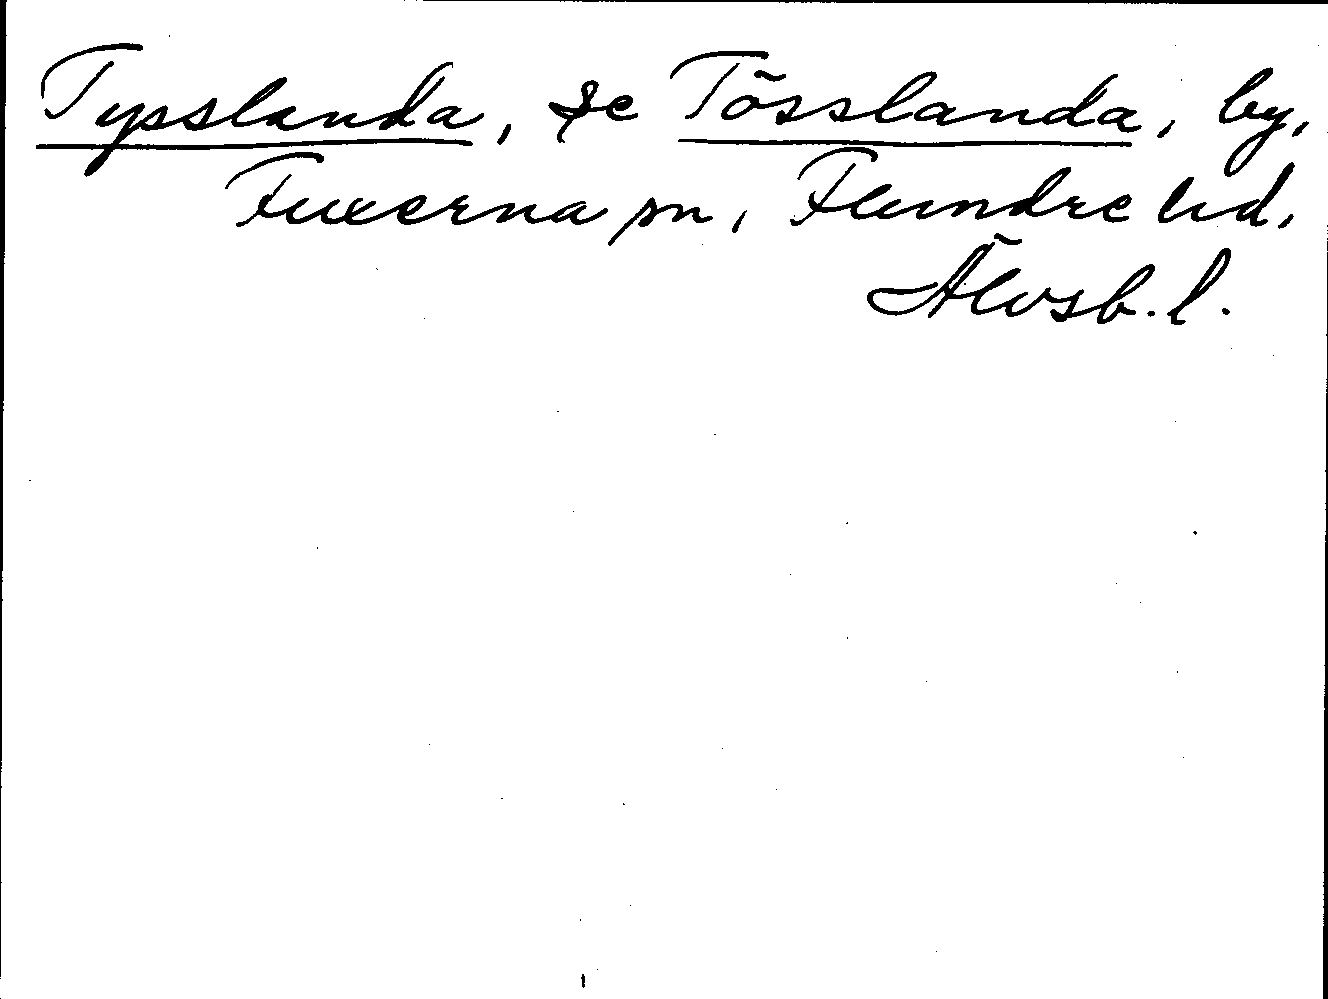 Tysslanda, se Tösslanda, by,
Fuxerna sn, Flundre hd,
Älvsb. l.